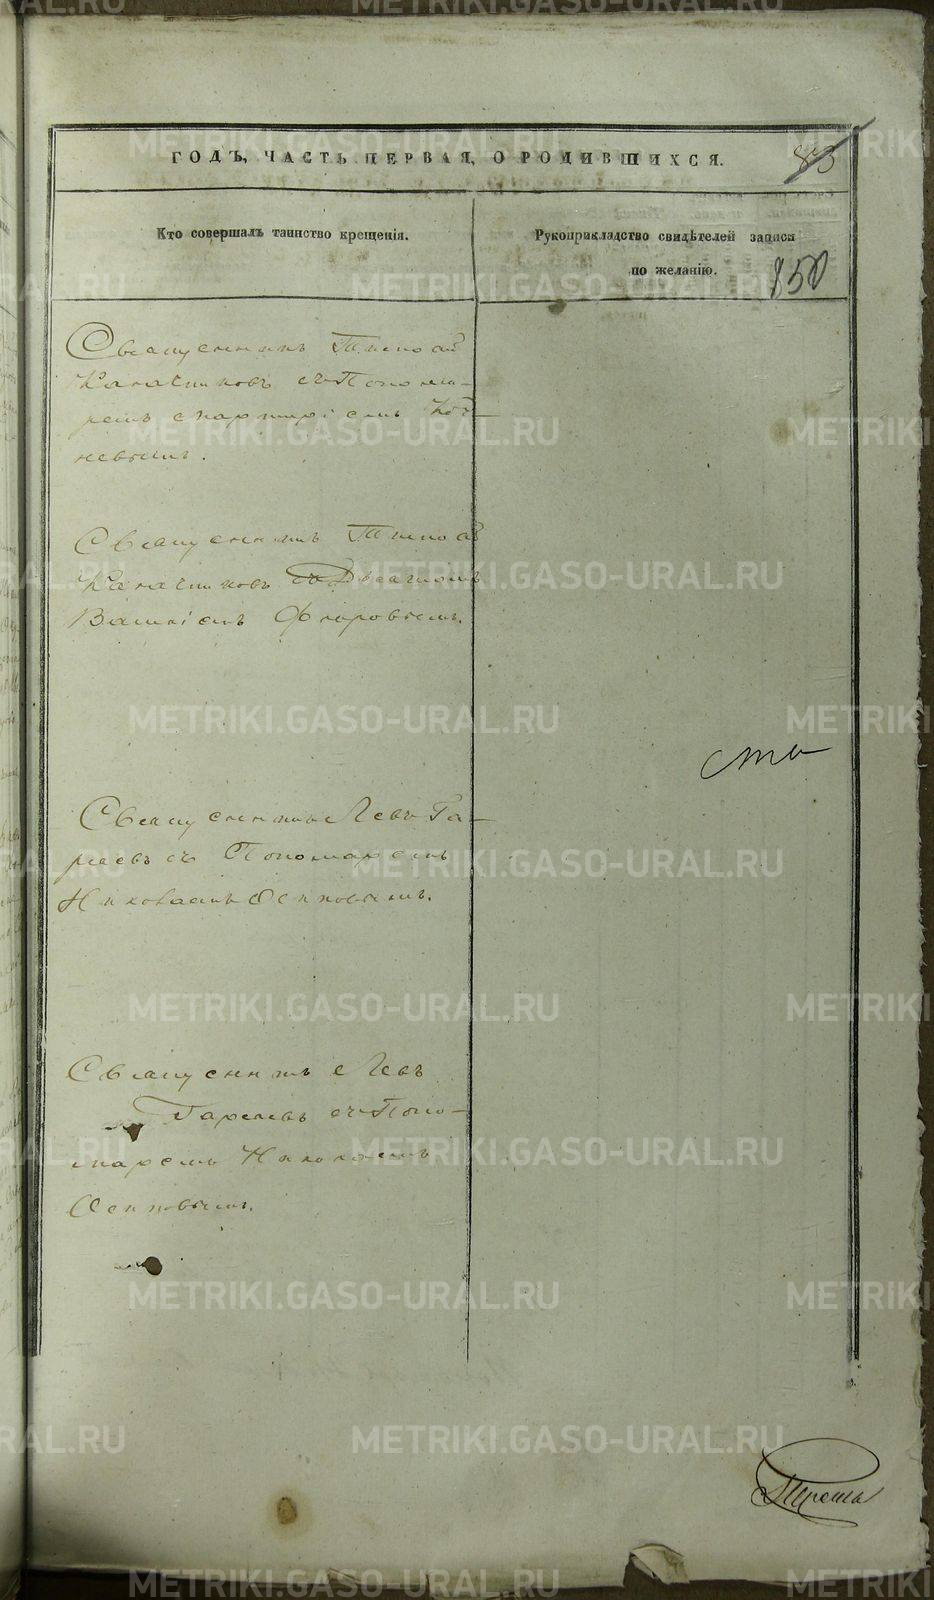 ГОДЪ, ЧАСТЬ ПЕРВАЯ, О РОДИВШИХСЯ.
83
Кто совершалъ таинство крещенія.
Рукоприкладство свидѣтелей записи
по желанію.
850
Священникъ Тимофей
Калачниковъ съ Понома-
ремъ
невымъ.
Священникъ Тимофей
Калачниковъ съ Дьячкомъ
Василіемъ Флоровымъ.
ста
Священникъ Левъ Га-
ряевъ съ Пономаремъ
Николаемъ Осиповымъ.
Священникъ Левъ
съ Поно-
маремъ Николаемъ
Осиповымъ.
METRIKI.GASO-URAL.RU